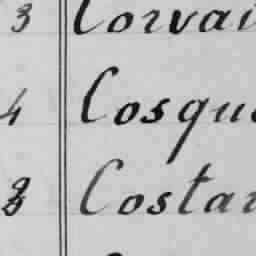 3 Corvai
4 Cosqu
8 Costa